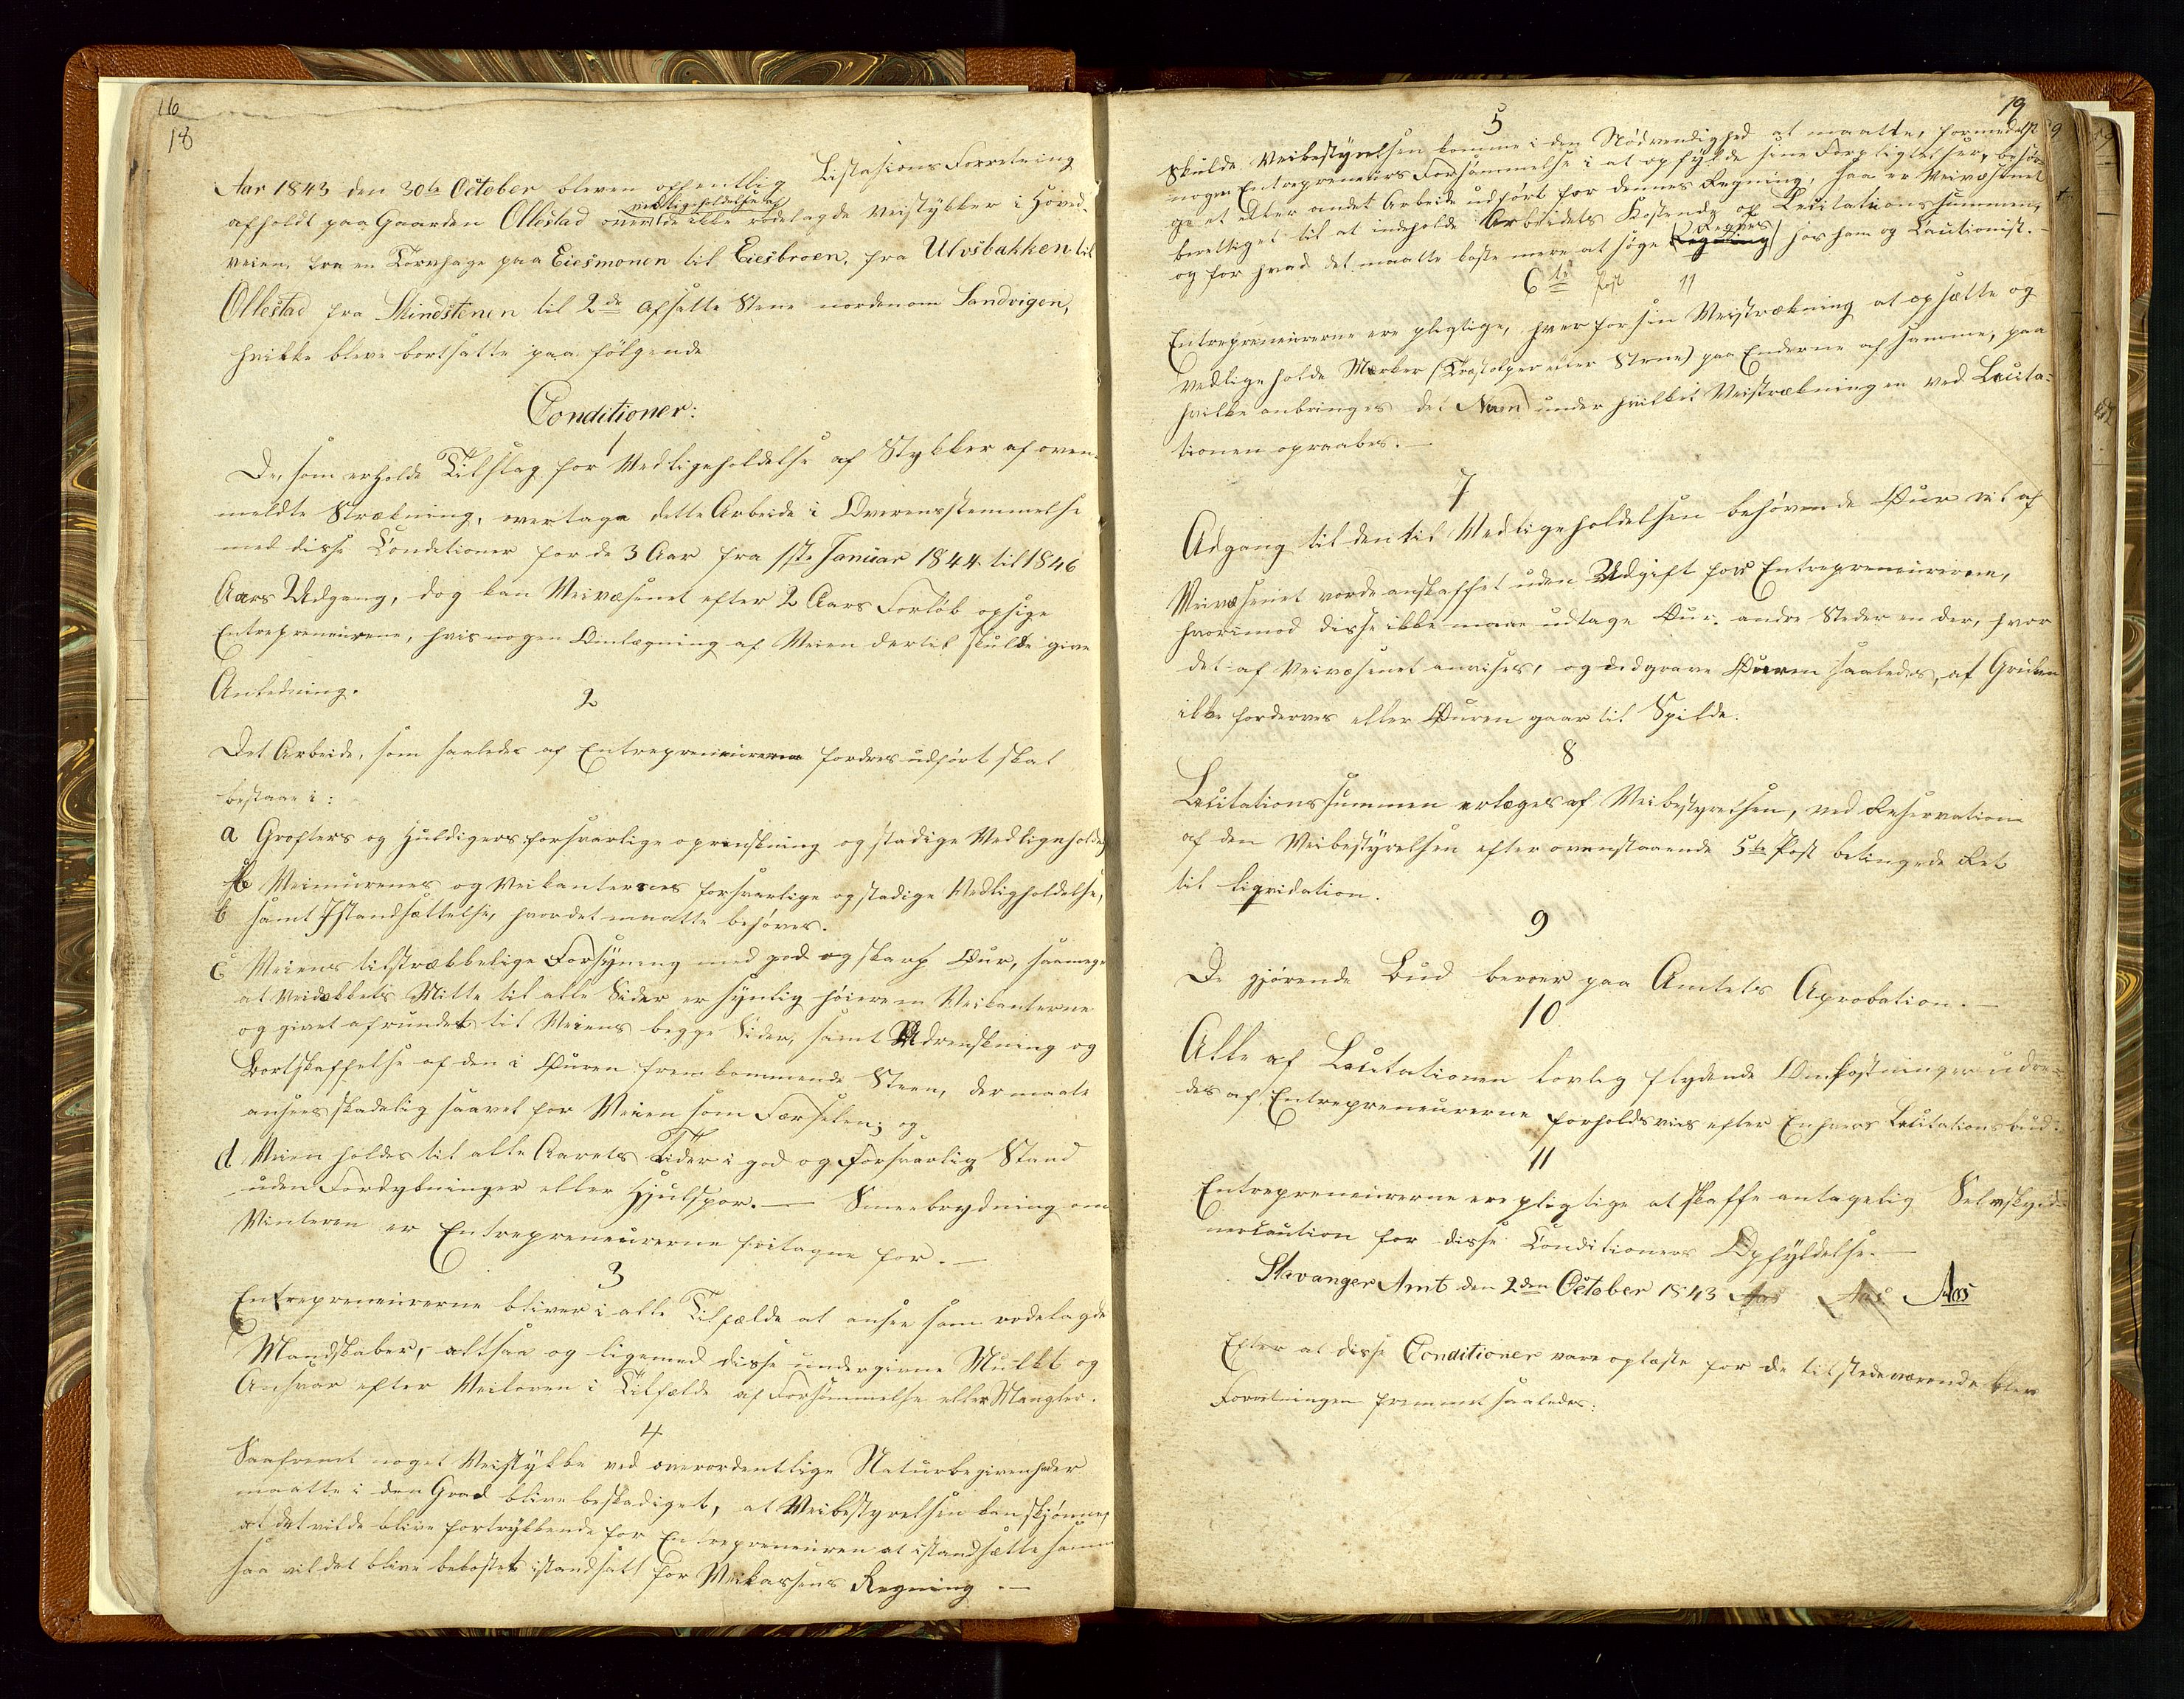 16
18
Aar 1843 den 30te October bleven offentlig Lisitasions Forretning
vedligeholdelse af
afholdt paa Gaarden Ollestad over de ikke rodelagde Veistykker i Hoved-
veien, fra en Torvhage paa Eiesmonen til Eiesbroen, fra Ulvsbakken til
Ollestad fra Mindstenen til 2de afsatte Stene nordenom Sandvigen,
hvilke bleve bortsatte paa følgende
Conditioner:
1
De, som erholde Tilslag for Vedligeholdelse af Stykker af oven-
meldte Strækning, overtage dette Arbeide i Overensstemmelse
med disse Conditioner for de 3 Aar fra 1ste Januar 1844 til 1846
Aars Udgang, dog kan Veivæsenet efter 2 Aars Forløb opsige
Entrepreneurene, hvis nogen Omlægning af Veien dertil skulde give
Anledning.
2
Det Arbeide, som saaledes af Entrepreneurerne fordres udført skal
bestaae i:
a Grøfters og Huldigers forsvarlige oprenskning og stadige Vedligeholdelse
b Veimurenes og Veikanternes forsvarlige og stadige Vedligeholdelse,
samt Istandsættelse, hvor det maatte behøves.
c Veiens tilstrækkelige Forsyning med god og skarp Øur, saameget
at Veidækkets Mitte til alle Sider er synlig høiere en Veikanterne
og givet afrundet til Veiens begge Sider, samt Udrenskning og
Bortskaffelse af den i Øuren fremkommende Steen, der maate
ansees skadelig saavel for Veien som Færselen; og
d Veien holdes til alle Aarets Tider i god og forsvarlig Stand
uden Fordybninger eller Hjulspor. — Sneebrydning om
Vinteren er Entrepreneurerne fritagne for. —
3
Entrepreneurerne bliver i alle Tilfælde at ansee som rodelagde
Mandskaber, altsaa og ligemed disse undergivne Mulkt og
Ansvar efter Veiloven i Tilfælde af Forsømmelse eller Mangler.
4
Saafremt noget Veistykke ved overordentlige Naturbegivenheder
maatte i den Grad blive beskadiget, at Veibestyrelsen kan skjønne,
at det vilde blive fortrykkende for Entrepreneuren at istandsætte samme
saa vil det blive bekostet istandsatt for Veikassens Regning. —
19
5
Skulde Veibestyrelsen komme i den Nødvendighed at maatte, formedelst
nogen Entrepreneurs Forsømmelse i at opfylde sine Forpligtelser, besør-
ge et eller andet Arbeide udført for dennes Regning, saa er Veivæsenet
berettiget til at indeholde Arbeidets Kostende af Lisitationssummen,
og for hvad det maatte koste mere at søge Regres hos ham og Cautionist. —
6te Post
Entrepreneurerne ere pligtige, hver for sin Veistrækning at opsætte og
vedligeholde Mærker (Træstolper eller Stene) paa Enderne af samme, paa
hvilke anbringes det Num under hvilket Veistrækningen ved Licita-
tionen opraabes. —
7
Adgang til den til Vedligeholdelsen behøvende Øur vil af
Veivæsenet vorde anskaffet uden Udgift for Entrepreneurerne,
hvorimod disse ikke maae udtage Øur. andre Steder en der, hvor
det af Veivæsenet anvises, og udgrave Øuren saaledes, at Gruben
ikke forderves eller Øuren gaar til Spilde.
8
Lecitationssummen erlægges af Veibestyrelsen, med Reservation
af den Veibestyrelsen efter ovenstaaende 5te Post betingede Ret
til liqvidation.
9
De gjørende Bud beroer paa Amtets Aprobation. —
10
Alle af Lecitationen lovlig flydende Omkostninger udre-
des af Entrepreneurerne forholdsvis efter Enhvers Lecitationsbud.
11
Entrepreneurerne ere pligtige at skaffe antagelig Selvskyld-
nercaution for disse Conditioners Opfyldelse. —
Stavanger Amt den 2den October 1843 Aas Aas Aas
Efter at disse Conditioner vare oplæste for de tilstedeværende blev
Forretningen fremmet saaledes: